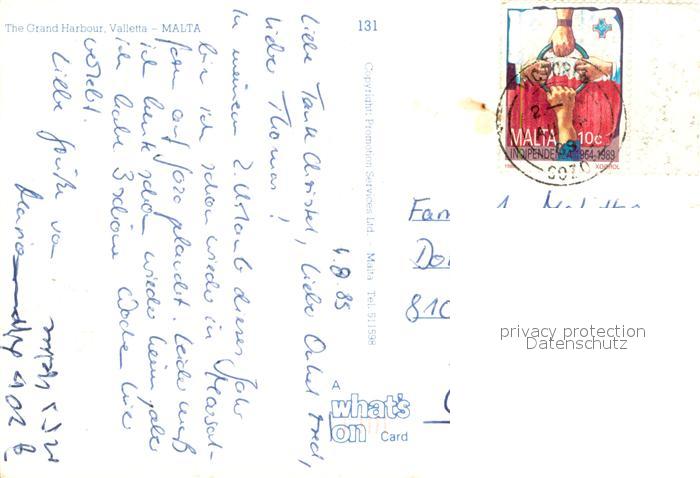 The Grand Harbour, Valletta – MALTA
131
4.8.89
Liebe Tante Christel, liebe Onkel Fred,
liebe Thomas!
In meinem 2. Urlaub dieses Jahr
bin ich schon wieder in Marsal-
forn auf Gozo gelandet. Leider muß
ich heute schon wieder heim, aber
ich habe 3 schöne Wochen hier
verlebt.
Liebe Grüße von
Maria
Copyright: Promotion Services Ltd. – Malta Tel. 511598
A
what's
on Card
MALTA 10c
INDIPENDENZA 1964-1989
GOZO
Fam
810
privacy protection
Datenschutz